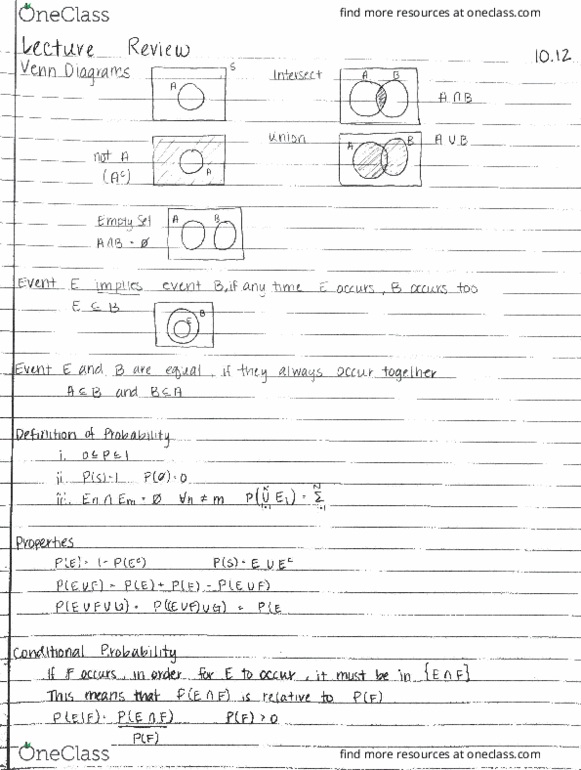 OneClass
find more resources at oneclass.com
Lecture Review
10.12
Venn Diagrams
A
S
Intersect
A B
A ∩ B
not A
(Aᶜ)
A
union
A B
A ∪ B
Empty Set
A∩B = ∅
A B
Event E implies event B, if any time E occurs, B occurs too
E ⊆ B
E B
Event E and B are equal, if they always occur together
A ⊆ B and B ⊆ A
Definition of Probability
i. 0 ≤ P ≤ 1
ii. P(S) = 1 P(∅) = 0
iii. En ∩ Em = ∅ ∀n ≠ m P(∪ Ei) = Σ
Properties
P(E) = 1 - P(Eᶜ) P(S) = E ∪ Eᶜ
P(E∪F) = P(E) + P(F) - P(E∪F)
P(E∪F∪G) = P((E∪F)∪G) = P(E
Conditional Probability
If F occurs, in order for E to occur, it must be in {E∩F}
This means that P(E∩F) is relative to P(F)
P(E|F) = P(E∩F) P(F) > 0
P(F)
OneClass
find more resources at oneclass.com